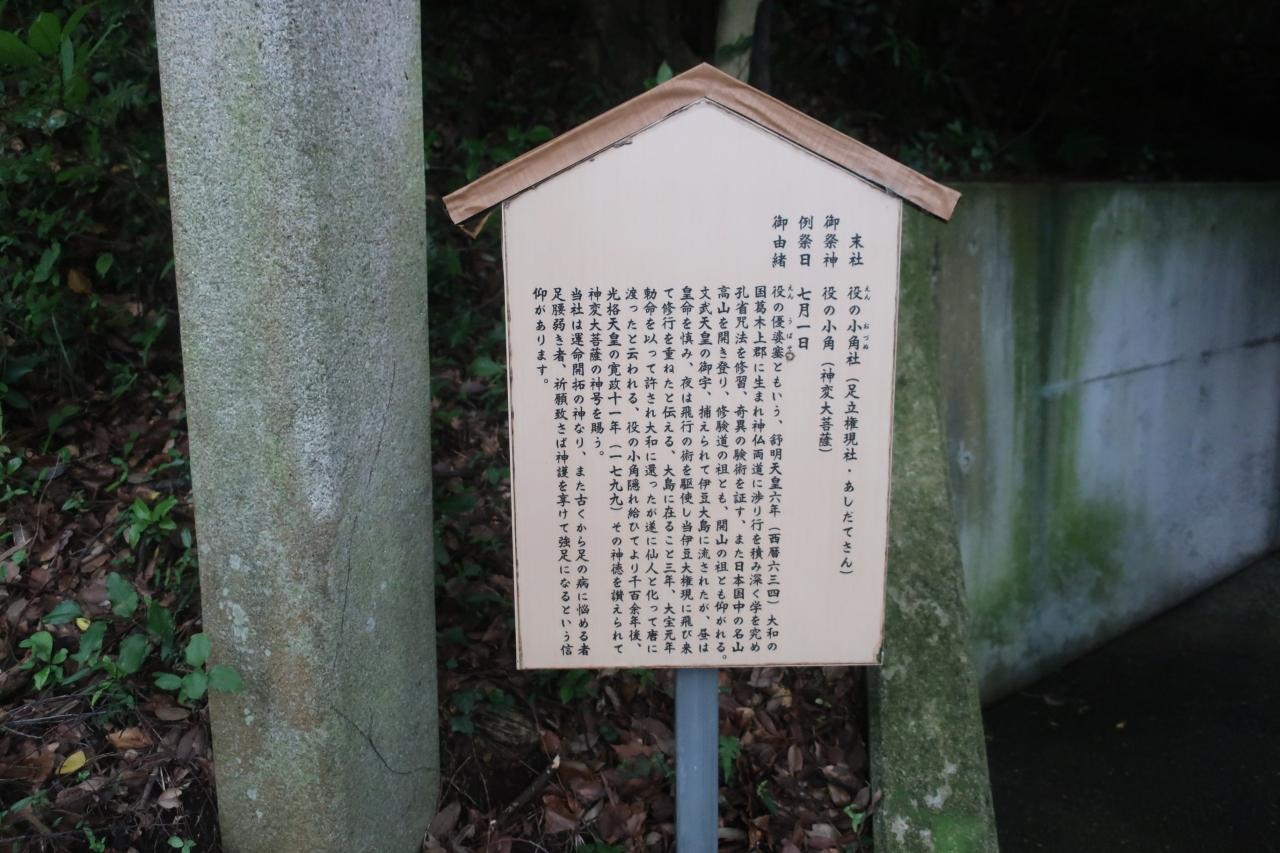 末社 役の小角社（足立権現社・あしだてさん）
えん おづぬ
御祭神 役の小角（神変大菩薩）
例祭日 七月一日
御由緒 役の優婆塞ともいう、舒明天皇六年（西暦六三四）大和の
えん うばそ
国葛木上郡に生まれ神仏両道に渉り行を積み深く学を究め
孔雀咒法を修習、奇異の験術を証す、また日本国中の名山
高山を開き登り、修験道の祖とも、開山の祖とも仰がれる。
文武天皇の御宇、捕えられて伊豆大島に流されたが、昼は
皇命を慎み、夜は飛行の術を駆使し当伊豆大権現に飛び来
て修行を重ねたと伝える、大島に在ること三年、大宝元年
勅命を以って許され大和に還ったが遂に仙人と化って唐に
渡ったと云われる、役の小角隠れ給ひてより千百余年後、
光格天皇の寛政十一年（一七九九）その神徳を讃えられて
神変大菩薩の神号を賜う。
当社は運命開拓の神なり、また古くから足の病に悩める者
足腰弱き者、祈願致さば神護を享けて強足になるという信
仰があります。